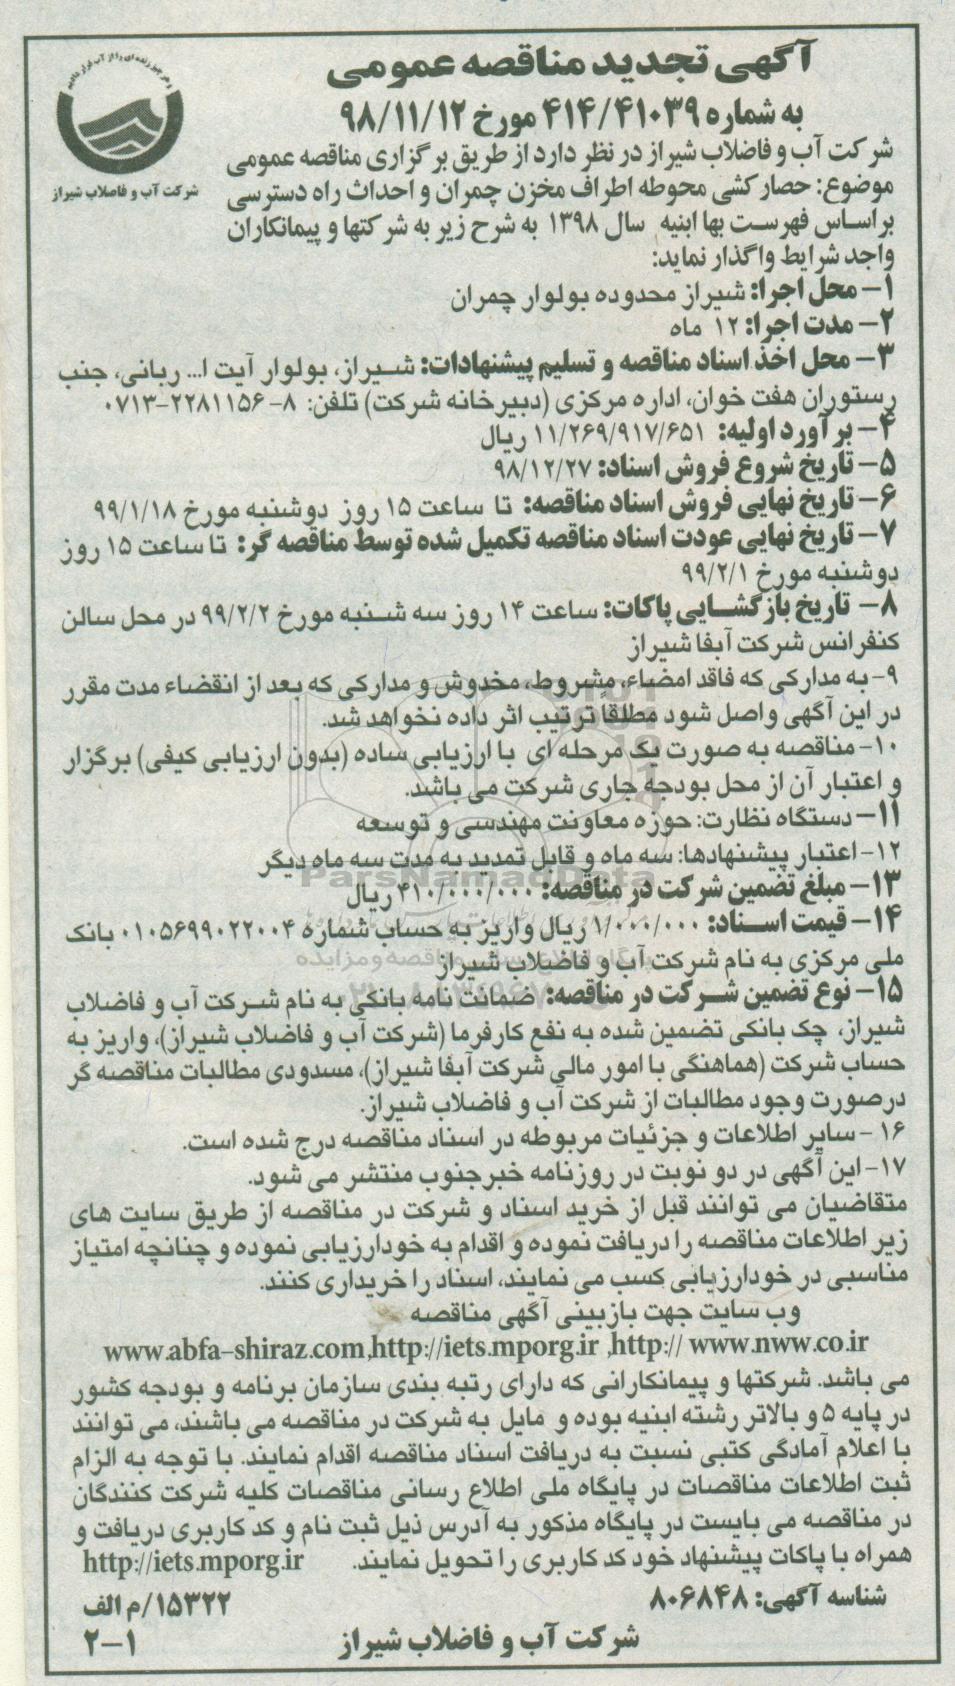 آگهی تجدید مناقصه عمومی
به شماره ۴۱۴/۴۱۰۳۹ مورخ ۹۸/۱۱/۱۲
شرکت آب و فاضلاب شیراز
شرکت آب و فاضلاب شیراز در نظر دارد از طریق برگزاری مناقصه عمومی
موضوع: حصارکشی محوطه اطراف مخزن چمران و احداث راه دسترسی
براساس فهرست بها ابنیه سال ۱۳۹۸ به شرح زیر به شرکتها و پیمانکاران
واجد شرایط واگذار نماید:
۱- محل اجرا: شیراز محدوده بولوار چمران
۲- مدت اجرا: ۱۲ ماه
۳- محل اخذ اسناد مناقصه و تسلیم پیشنهادات: شیراز، بولوار آیت ا... ربانی، جنب
رستوران هفت خوان، اداره مرکزی (دبیرخانه شرکت) تلفن: ۸-۰۷۱۳-۲۲۸۱۱۵۶
۴- برآورد اولیه: ۱۱/۲۶۹/۹۱۷/۶۵۱ ریال
۵- تاریخ شروع فروش اسناد: ۹۸/۱۲/۲۷
۶- تاریخ نهایی فروش اسناد مناقصه: تا ساعت ۱۵ روز دوشنبه مورخ ۹۹/۱/۱۸
۷- تاریخ نهایی عودت اسناد مناقصه تکمیل شده توسط مناقصه گر: تا ساعت ۱۵ روز
دوشنبه مورخ ۹۹/۲/۱
۸- تاریخ بازگشایی پاکات: ساعت ۱۴ روز سه شنبه مورخ ۹۹/۲/۲ در محل سالن
کنفرانس شرکت آبفا شیراز
۹- به مدارکی که فاقد امضاء، مشروط، مخدوش و مدارکی که بعد از انقضاء مدت مقرر
در این آگهی واصل شود مطلقاً ترتیب اثر داده نخواهد شد.
۱۰- مناقصه به صورت یک مرحله ای با ارزیابی ساده (بدون ارزیابی کیفی) برگزار
و اعتبار آن از محل بودجه جاری شرکت می باشد.
۱۱- دستگاه نظارت: حوزه معاونت مهندسی و توسعه
۱۲- اعتبار پیشنهادها: سه ماه و قابل تمدید به مدت سه ماه دیگر
ParsNamadData
۱۳- مبلغ تضمین شرکت در مناقصه: ۴۱۰/۰۰۰/۰۰۰ ریال
۱۴- قیمت اسناد: ۱/۰۰۰/۰۰۰ ریال واریز به حساب شماره ۰۱۰۵۶۹۹۰۲۲۰۰۴ بانک
ملی مرکزی به نام شرکت آب و فاضلاب شیراز
۱۵- نوع تضمین شرکت در مناقصه: ضمانت نامه بانکی به نام شرکت آب و فاضلاب
شیراز، چک بانکی تضمین شده به نفع کارفرما (شرکت آب و فاضلاب شیراز)، واریز به
حساب شرکت (هماهنگی با امور مالی شرکت آبفا شیراز)، مسدودی مطالبات مناقصه گر
درصورت وجود مطالبات از شرکت آب و فاضلاب شیراز.
۱۶- سایر اطلاعات و جزئیات مربوطه در اسناد مناقصه درج شده است.
۱۷- این آگهی در دو نوبت در روزنامه خبرجنوب منتشر می شود.
متقاضیان می توانند قبل از خرید اسناد و شرکت در مناقصه از طریق سایت های
زیر اطلاعات مناقصه را دریافت نموده و اقدام به خودارزیابی نموده و چنانچه امتیاز
مناسبی در خودارزیابی کسب می نمایند، اسناد را خریداری کنند.
وب سایت جهت بازبینی آگهی مناقصه
www.abfa-shiraz.com,http://iets.mporg.ir ,http:// www.nww.co.ir
می باشد. شرکتها و پیمانکارانی که دارای رتبه بندی سازمان برنامه و بودجه کشور
در پایه ۵ و بالاتر رشته ابنیه بوده و مایل به شرکت در مناقصه می باشند، می توانند
با اعلام آمادگی کتبی نسبت به دریافت اسناد مناقصه اقدام نمایند. با توجه به الزام
ثبت اطلاعات مناقصات در پایگاه ملی اطلاع رسانی مناقصات کلیه شرکت کنندگان
در مناقصه می بایست در پایگاه مذکور به آدرس ذیل ثبت نام و کد کاربری دریافت و
همراه با پاکات پیشنهاد خود کد کاربری را تحویل نمایند. http://iets.mporg.ir
شناسه آگهی: ۸۰۶۸۴۸ ۱۵۳۲۲/م الف
شرکت آب و فاضلاب شیراز ۲-۱